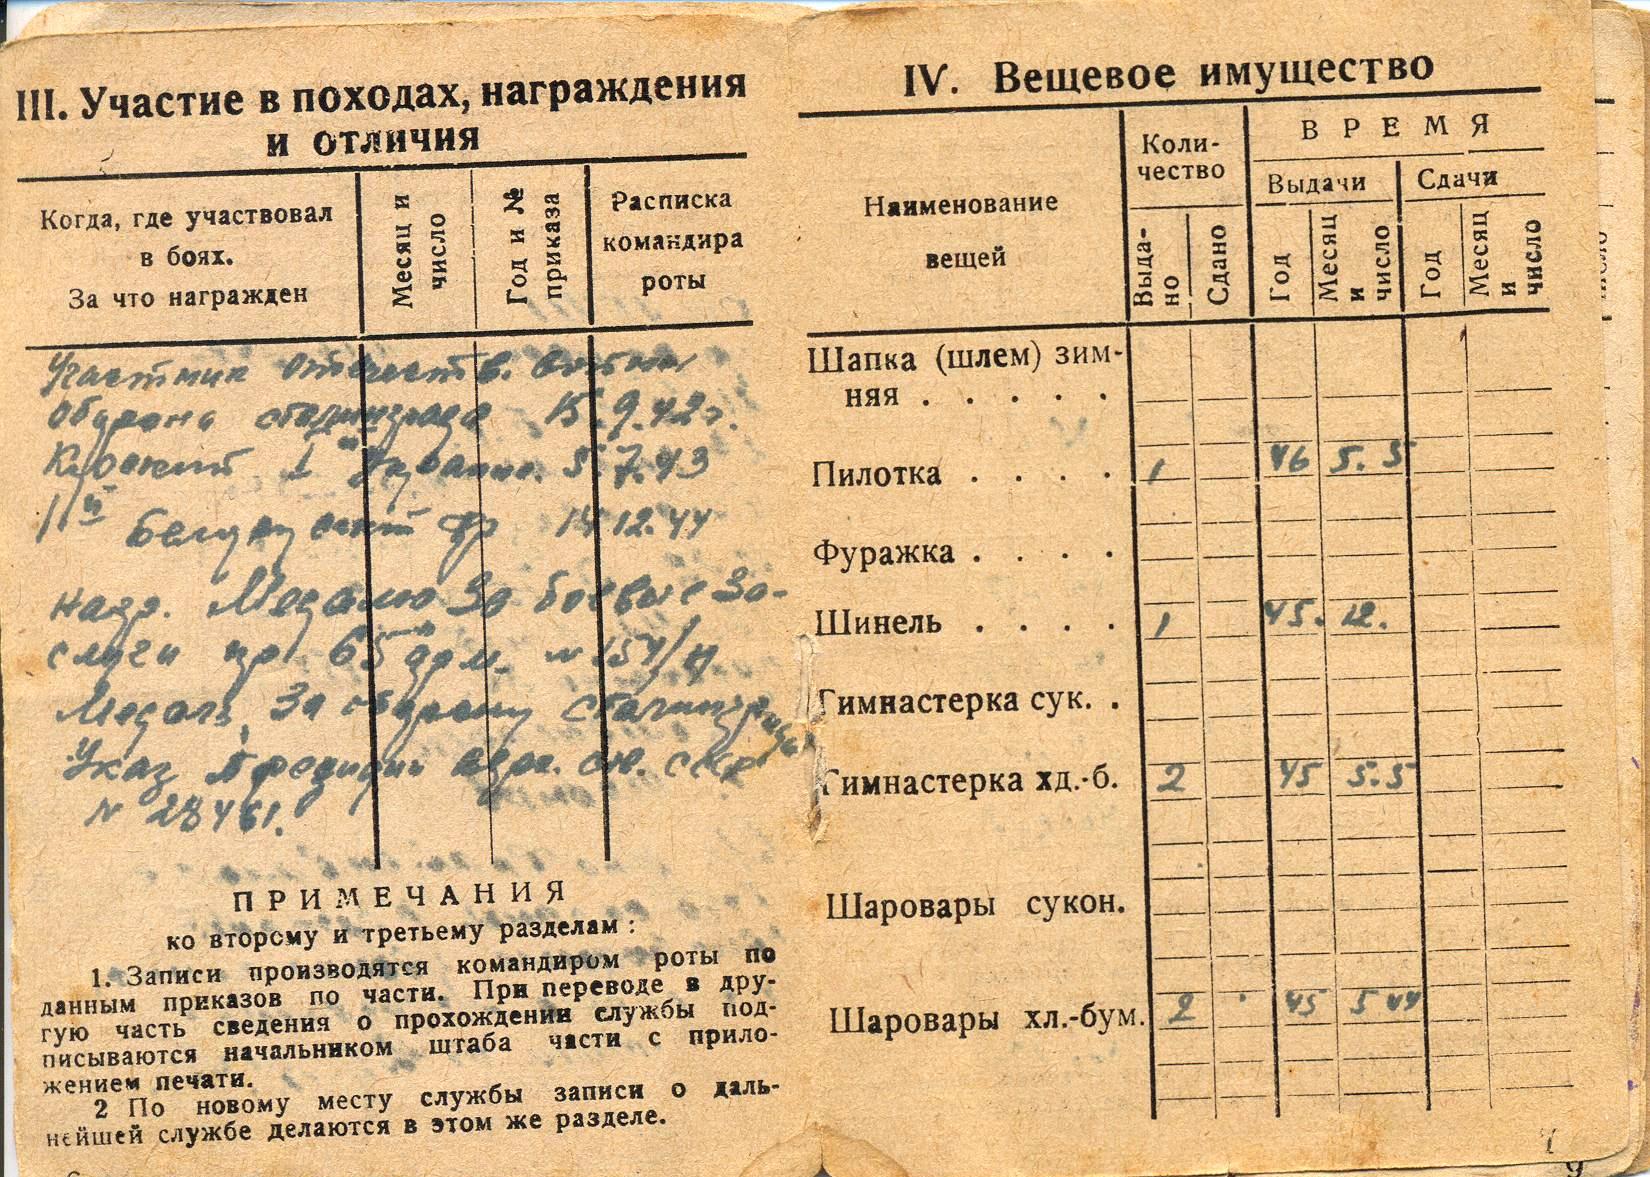 III. Участие в походах, награждения
и отличия
Когда, где участвовал
в боях.
За что награжден
Месяц и
число
Год и №
приказа
Расписка
командира
роты
Участник отечеств. войны
Оборона сталинграда 15.9.42г.
Курский 1й Украин. 5.7.43
1й Белорусский фр 14 12.44
Нагр. Медалью За боевые За-
слуги пр 65 арм. № 154/н
Медаль За оборону сталинграда
Указ Президиум верх. сов. ссср
N 28461.
ПРИМЕЧАНИЯ
ко второму и третьему разделам:
1. Записи производятся командиром роты по
данным приказов по части. При переводе в дру-
гую часть сведения о прохождении службы под-
писываются начальником штаба части с прило-
жением печати.
2 По новому месту службы записи о даль-
нейшей службе делаются в этом же разделе.
IV. Вещевое имущество
Наименование
вещей
Коли-
чество
Выда-
но
Сдано
ВРЕМЯ
Выдачи
Сдачи
Год
Месяц
и
число
Год
Месяц
и
число
Шапка (шлем) зим-
няя . . . . .
Пилотка . . . . 1 46 5. 5
Фуражка . . . .
Шинель . . . . 1 45. 12.
Гимнастерка сук. .
Гимнастерка хд.-б. 2 45 5. 5
Шаровары сукон.
Шаровары хл.-бум. 2 45 5
7
9